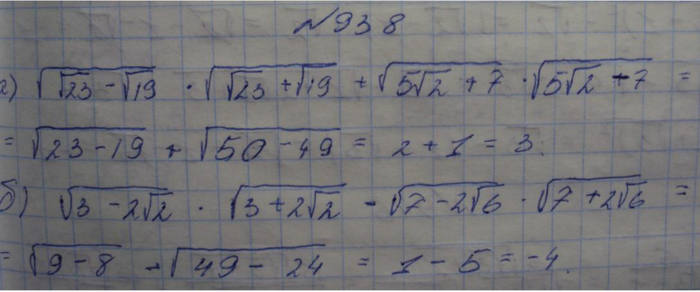 №938
а) √(√23 - √19) · √(√23 + √19) + √(5√2 + 7) · √(5√2 + 7) =
= √(23 - 19) + √(50 - 49) = 2 + 1 = 3.
б) √(3 - 2√2) · √(3 + 2√2) - √(7 - 2√6) · √(7 + 2√6) =
= √(9 - 8) - √(49 - 24) = 1 - 5 = -4.